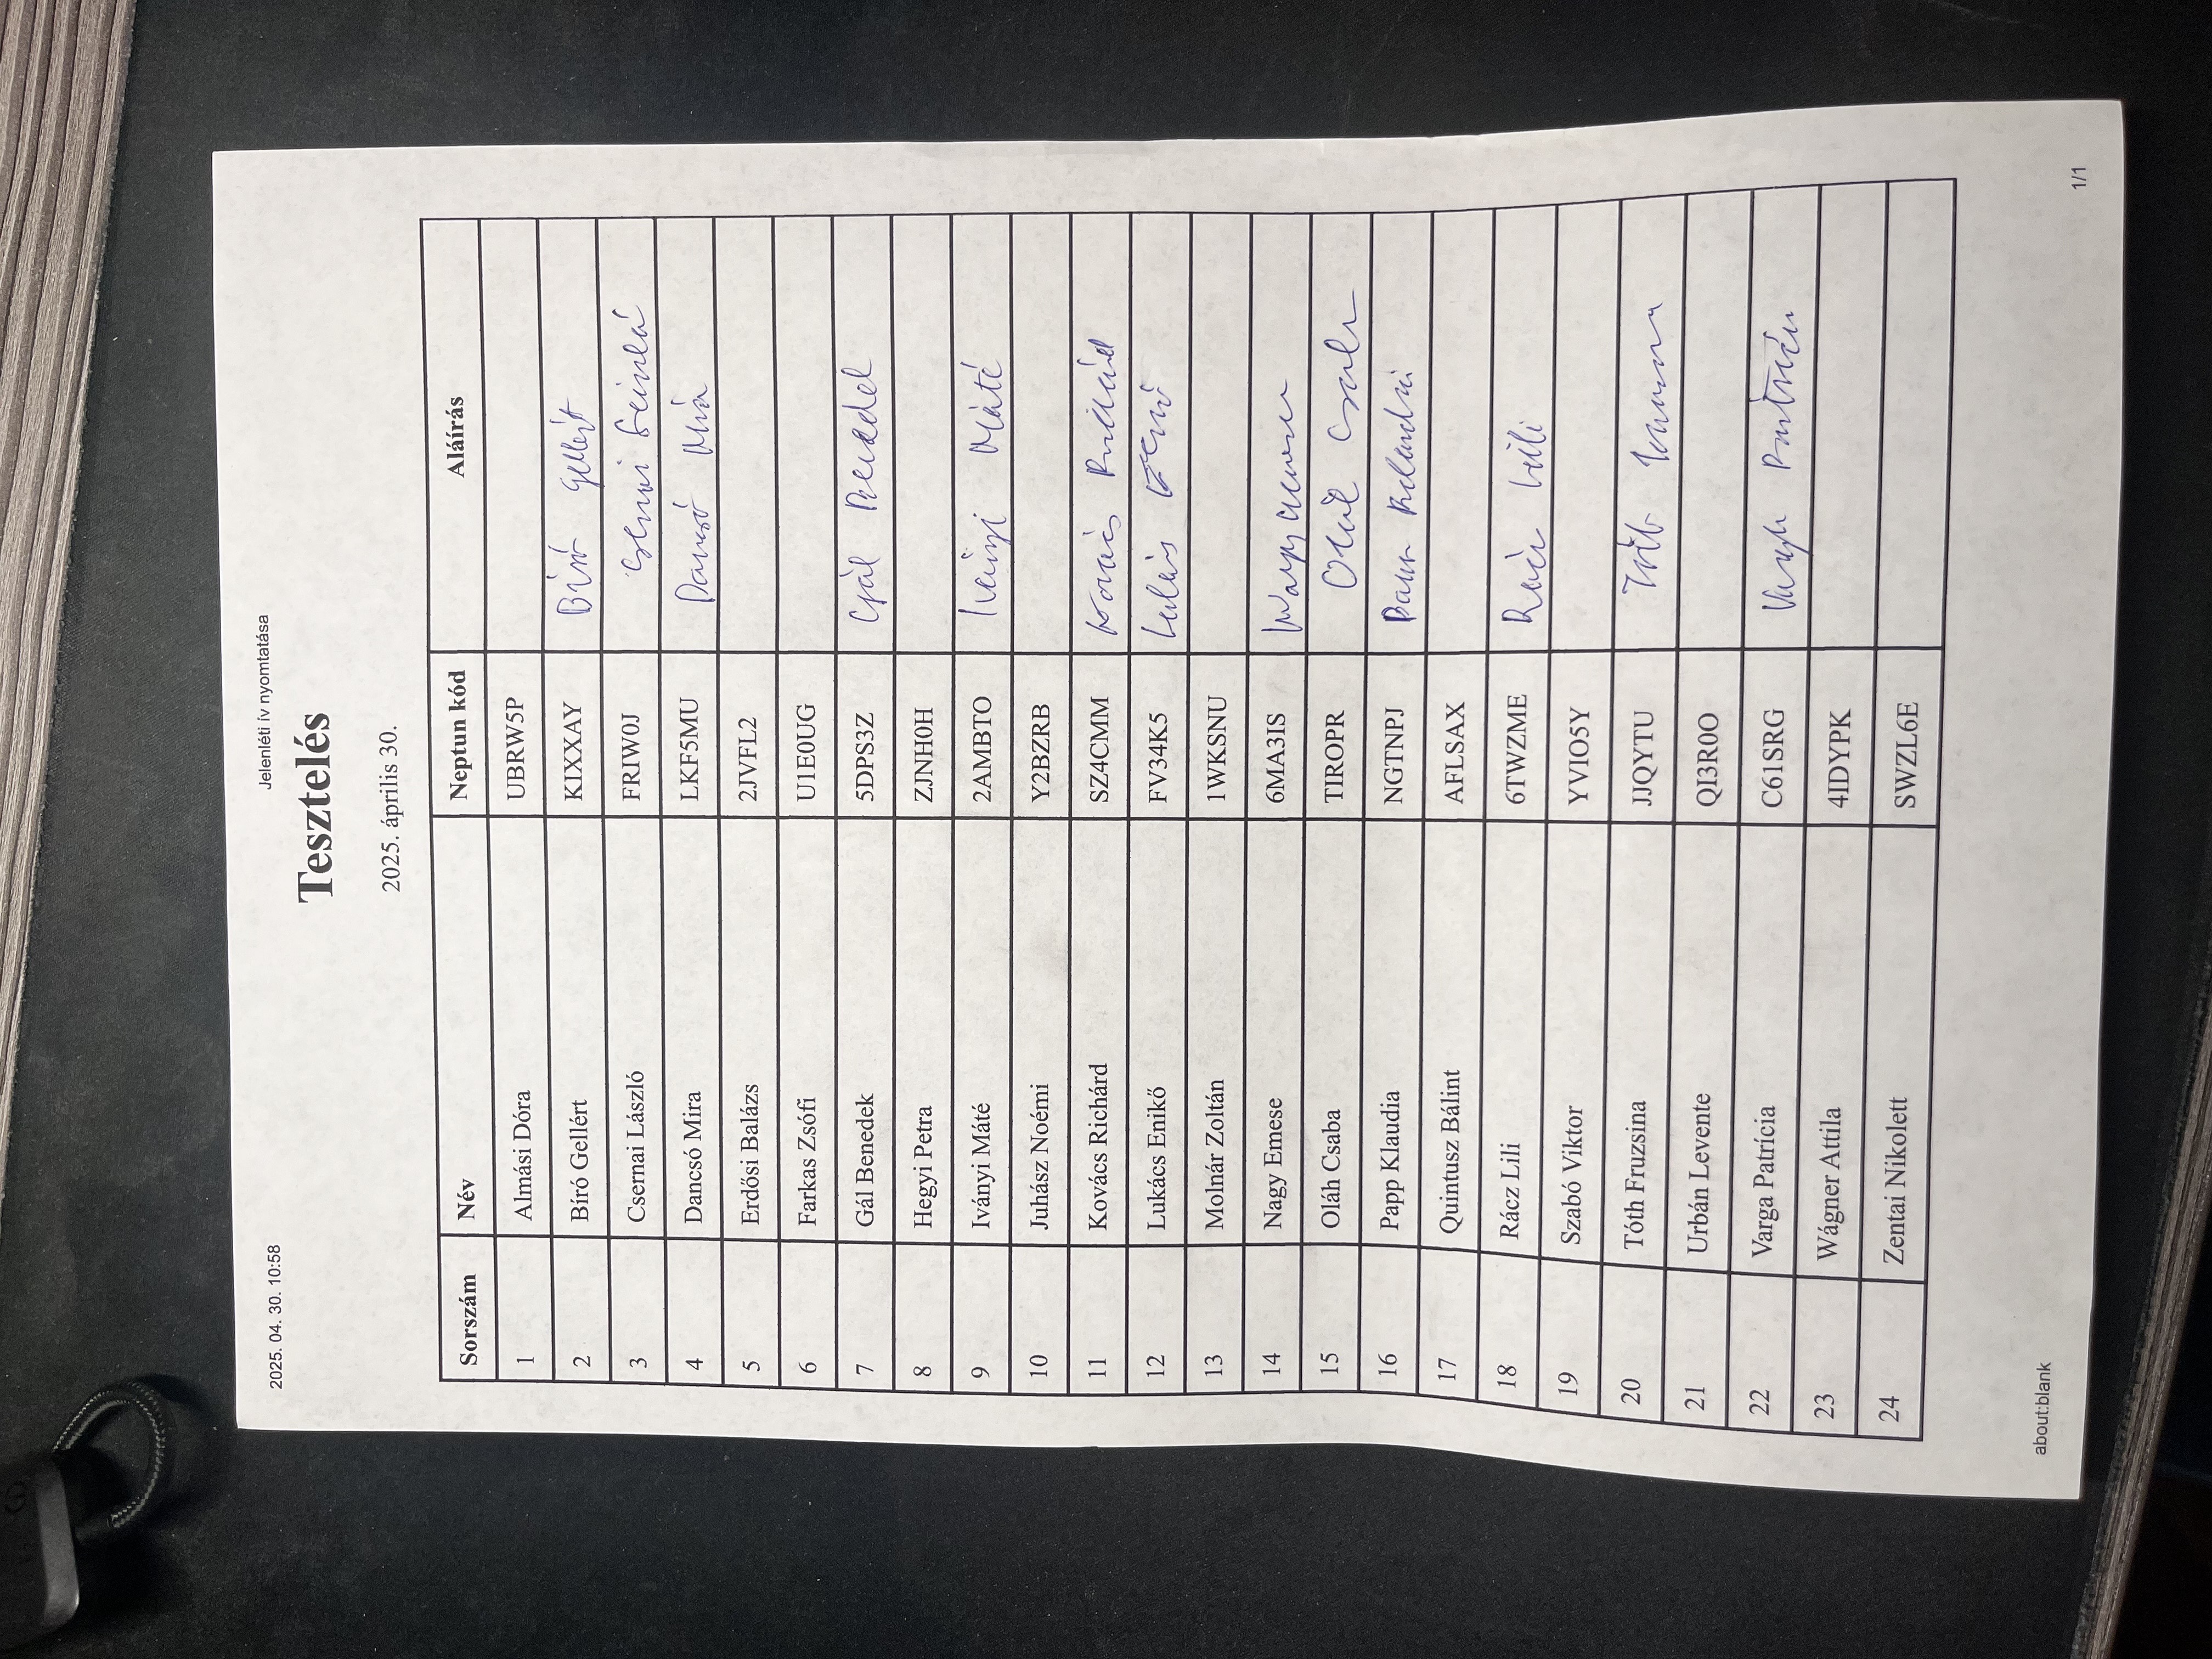 2025. 04. 30. 10:58 Jelenléti ív nyomtatása
Tesztelés
2025. április 30.
Sorszám Név Neptun kód Aláírás
1 Almási Dóra UBRW5P
2 Bíró Gellért KIXXAY Bíró Gellért
3 Csernai László FRIW0J
4 Dancsó Mira LKF5MU Dancsó Mira
5 Erdősi Balázs 2JVFL2
6 Farkas Zsófi U1E0UG
7 Gál Benedek 5DPS3Z Gál Benedek
8 Hegyi Petra ZJNH0H
9 Iványi Máté 2AMBTO Iványi Máté
10 Juhász Noémi Y2BZRB
11 Kovács Richárd SZ4CMM Kovács Richárd
12 Lukács Enikő FV34K5 Lukács
13 Molnár Zoltán 1WKSNU
14 Nagy Emese 6MA3IS Nagy Emese
15 Oláh Csaba TIROPR Oláh Csaba
16 Papp Klaudia NGTNPJ
17 Quintusz Bálint AFLSAX
18 Rácz Lili 6TWZME Rácz Lili
19 Szabó Viktor YVIO5Y
20 Tóth Fruzsina JJQYTU Tóth
21 Urbán Levente QI3R0O
22 Varga Patrícia C61SRG Varga Patrícia
23 Wágner Attila 4IDYPK
24 Zentai Nikolett SWZL6E
about:blank
1/1